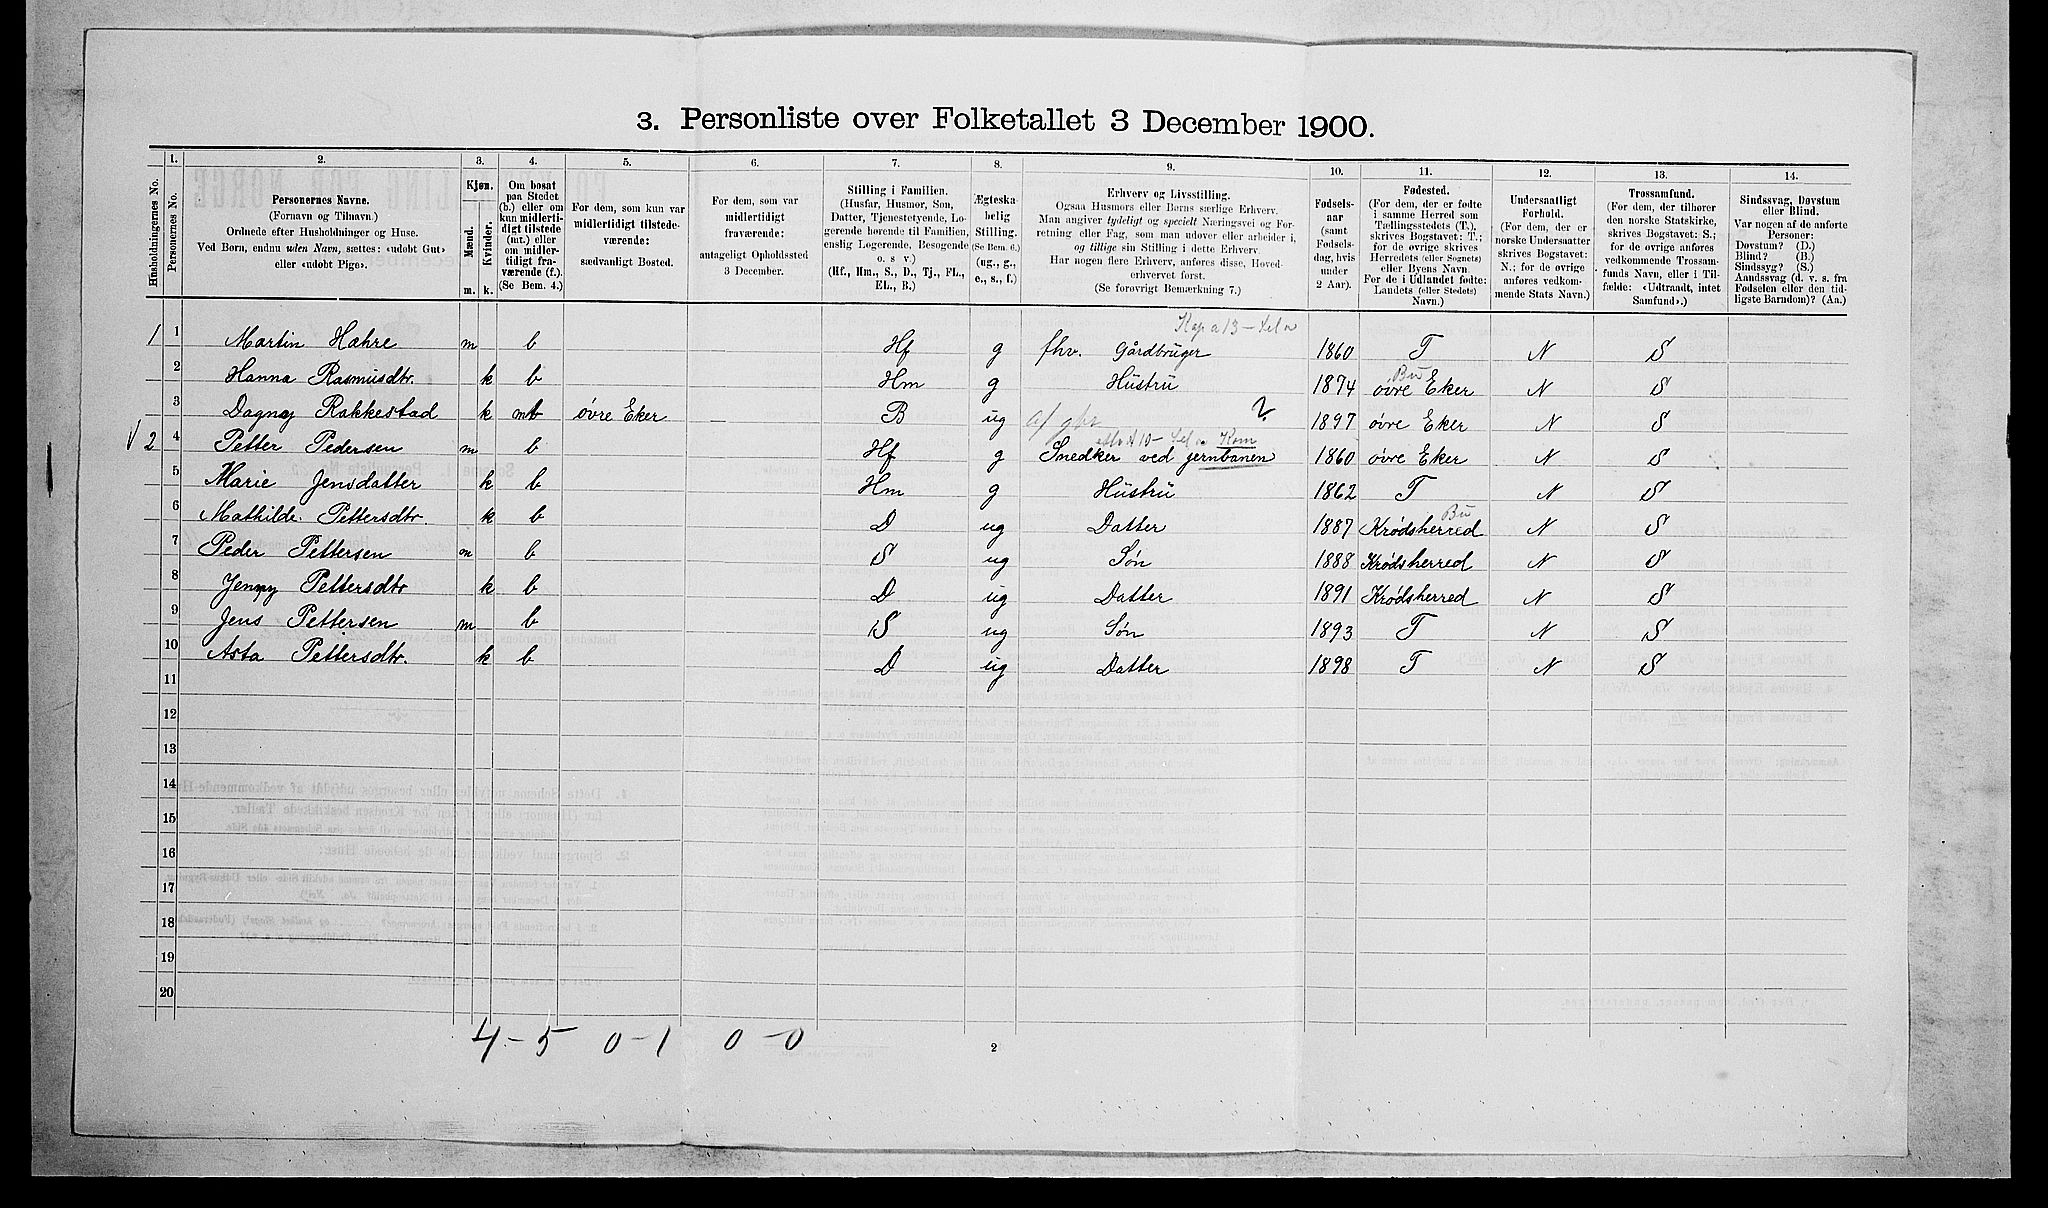 3. Personliste over Folketallet 3 December 1900.
1. 2. 3. 4. 5. 6. 7. 8. 9. 10. 11. 12. 13. 14.
Husholdningernes No.
Personernes No.
Personernes Navne.
(Fornavn og Tilnavn.)
Ordnede efter Husholdninger og Huse.
Ved Børn, endnu uden Navn, sættes: «udøbt Gut»
eller «udøbt Pige».
Kjøn.
Mænd.
Kvinder.
m. k.
Om bosat
paa Stedet
(b.) eller om
kun midlerti-
digt tilstede
(mt.) eller
om midler-
tidigt fra-
værende (f.).
(Se Bem. 4.)
For dem, som kun var
midlertidigt tilstede-
værende:
sædvanligt Bosted.
For dem, som var
midlertidigt
fraværende:
antageligt Opholdssted
3 December.
Stilling i Familien.
(Husfar, Husmor, Søn,
Datter, Tjenestetyende, Lo-
gerende hørende til Familien,
enslig Logerende, Besøgende
o. s. v.)
(Hf., Hm., S., D., Tj., FL.,
EL., B.)
Ægteska-
belig
Stilling.
(Se Bem. 6.)
(ug., g.,
e., s., f.)
Erhverv og Livsstilling.
Ogsaa Husmors eller Børns særlige Erhverv.
Man angiver tydeligt og specielt Næringsvei og For-
retning eller Fag, som man udøver eller arbeider i,
og tillige sin Stilling i dette Erhverv.
Har nogen flere Erhverv, anføres disse, Hoved-
erhvervet først.
(Se forøvrigt Bemærkning 7.)
Fødsels-
aar
(samt
Fødsels-
dag, hvis
under
2 Aar).
Fødested.
(For dem, der er fødte
i samme Herred som
Tællingsstedets (T.),
skrives Bogstavet: T.;
for de øvrige skrives
Herredets (eller Sognets)
eller Byens Navn.
For de i Udlandet fødte:
Landets (eller Stedets)
Navn.)
Undersaatligt
Forhold.
(For dem, der er
norske Undersaatter
skrives Bogstavet:
N.; for de øvrige
anføres vedkom-
mende Stats Navn.)
Trossamfund.
(For dem, der tilhører
den norske Statskirke,
skrives Bogstavet: S.;
for de øvrige anføres
vedkommende Trossam-
funds Navn, eller i Til-
fælde: «Udtraadt, intet
Samfund».)
Sindssvag, Døvstum
eller Blind.
Var nogen af de anførte
Personer:
Døvstum? (D.)
Blind? (B.)
Sindssyg? (S.)
Aandssvag (d. v. s. fra
Fødselen eller den tid-
ligste Barndom)? (Aa.)
1 1 Martin Hahre m b Hf g fhv. Gårdbruger 1860 T N S
2 Hanna Rasmusdtr. k b Hm g Hustru 1874 Bu øvre Eker N S
3 Dagny Rakkestad k mt øvre Eker — B ug ? 1897 øvre Eker N S
2 4 Petter Pedersen m b Hf g Snedker ved jernbanen 1860 øvre Eker N S
5 Marie Jensdatter k b Hm g Hustru 1862 T N S
6 Mathilde Pettersdtr. k b D ug Datter 1887 Bu Krødsherred N S
7 Peder Pettersen m b S ug Søn 1888 Krødsherred N S
8 Jenny Pettersdtr k b D ug Datter 1891 Krødsherred N S
9 Jens Pettersen m b S ug Søn 1893 T N S
10 Asta Pettersdtr. k b D ug Datter 1898 T N S
11
12
13
14
15
16
17
18
19
20
4-5 0-1 0-0
2